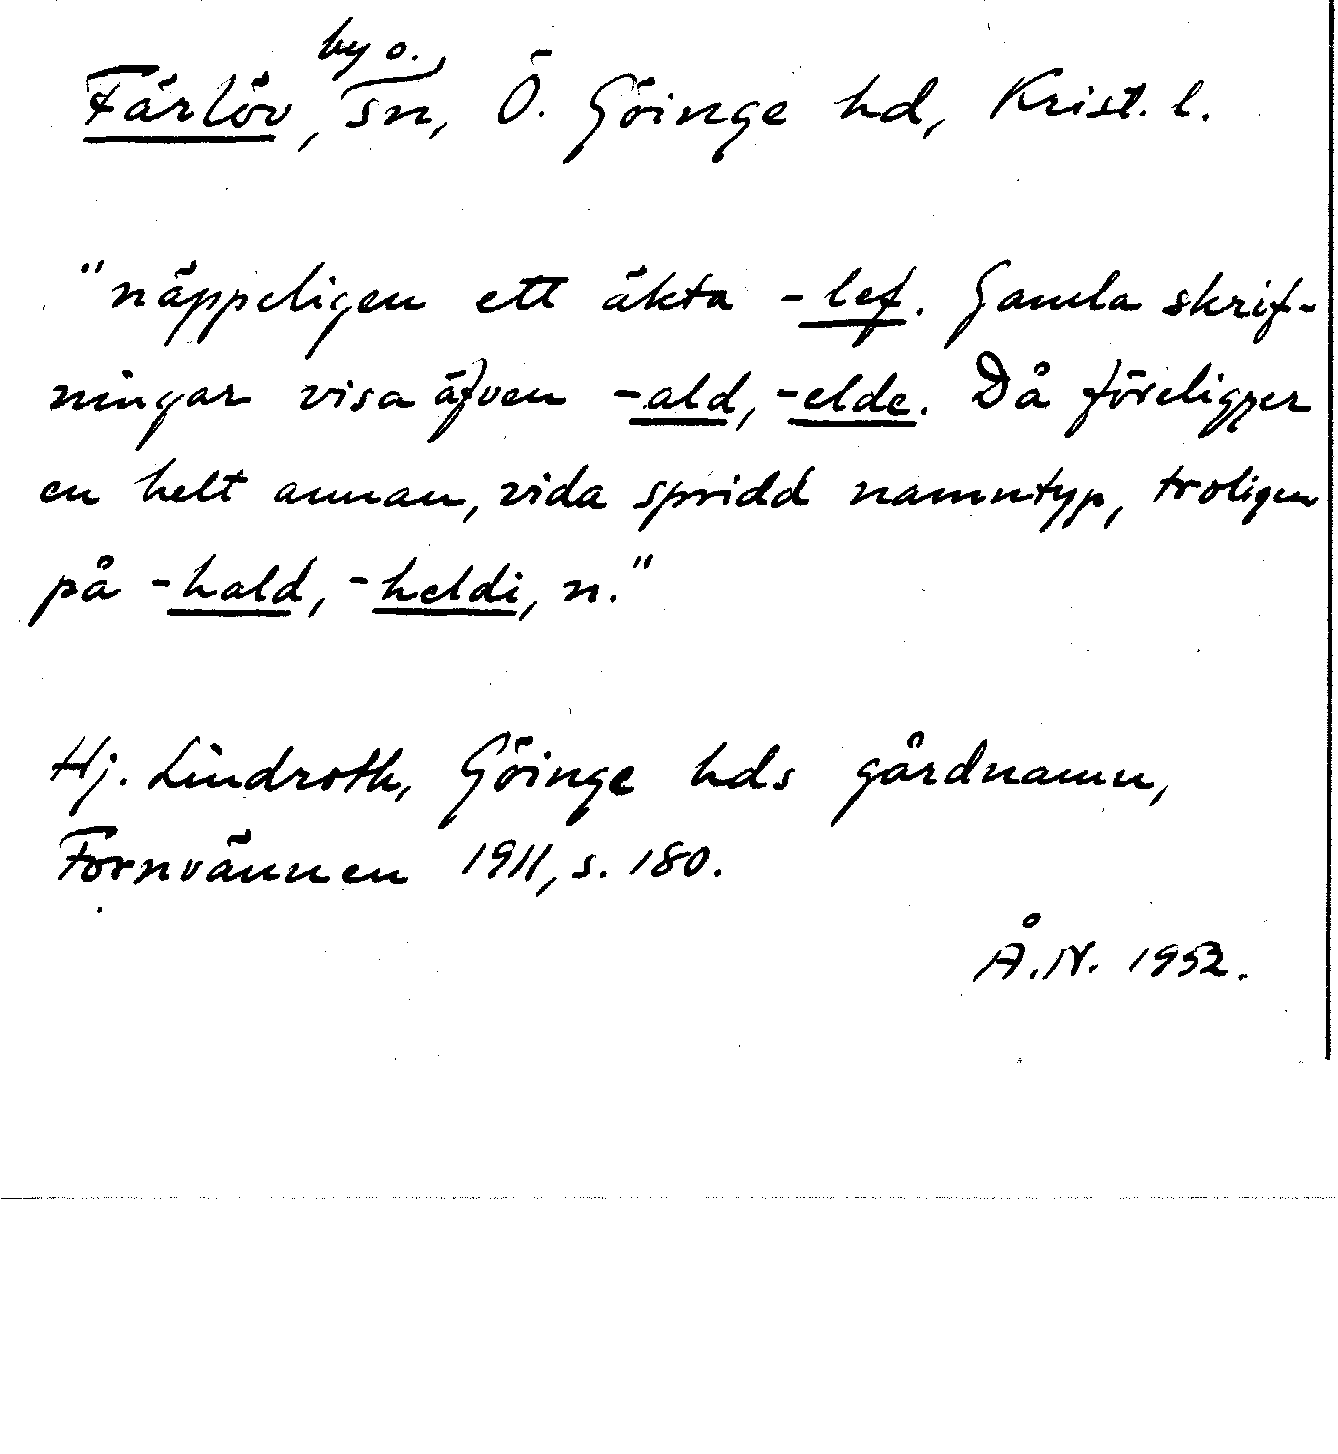 Färlöv, by o. sn, Ö. Göinge hd, Krist. l.
"näppeligen ett äkta -lef. Gamla skrif-
ningar visa äfven -ald, -elde. Då föreligger
en helt annan, vida spridd namntyp, troligen
på -hald, -heldi, n."
Hj. Lindroth, Göinge hds gårdnamn,
Fornvännen 1911, s. 180.
Å.N. 1952.